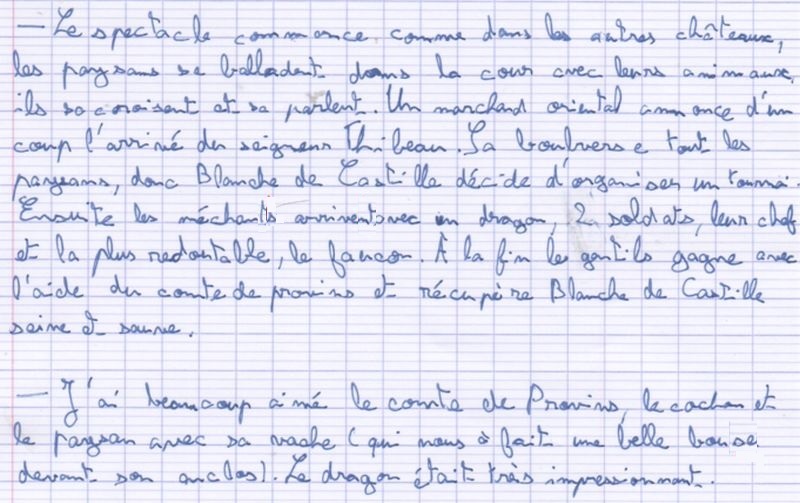 — Le spectacle commence comme dans les autres châteaux,
les paysans se balladent dans la cour avec leurs animaux,
ils se croisent et se parlent. Un marchand oriental annonce d'un
coup l'arrivé du seigneur Thibeau. Sa boulverse tout les
paysans, donc Blanche de Castille décide d'organiser un tournoi.
Ensuite les méchants arrivent avec un dragon, 2 soldats, leur chef
et la plus redoutable, le faucon. À la fin les gentils gagne avec
l'aide du comte de provins et récupère Blanche de Castille
seine et sauve.
— J'ai beaucoup aimé le comte de Provins, le cochon et
le paysan avec sa vache (qui nous à fait une belle bouse
devant son enclos). Le dragon était très impressionnant.